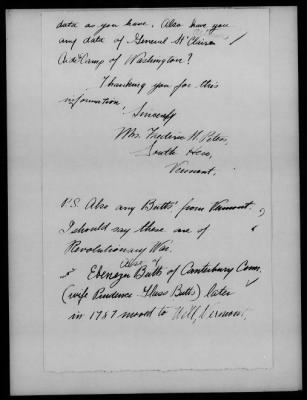 data as you have. Also have you
any data of General St Clair
Aide Camp of Washington?
Thanking you for this
information
Sincerely
Mrs. Frederic H. Peters,
South Hero,
Vermont.
P.S. Also any Butts' from Vermont.
I should say these are of
Revolutionary War.
Also of
Ebenezer Butts of Canterbury Conn.
(wife Prudence Butts) later
in 1787 moved to Vermont.